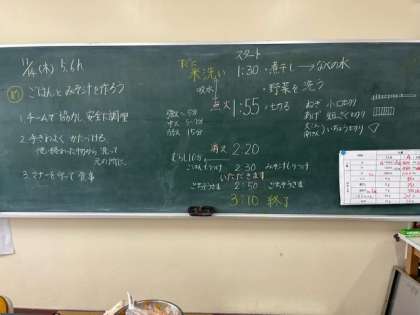 11/14(木) 5.6h
め ごはんとみそ汁を作ろう
1. チームで協力し安全に調理
2. 手ぎわよく かたづける
使い終わった物から洗って
元の所に。
3. マナーを守って食事
スタート
米洗い 1:30 ・煮干し→なべの水
吸水 ・野菜を洗う
点火 1:55 ・切る
ねぎ 小口切り
あげ 短ざく切り
いちょう切り
強火 5分
中火 5分
弱火 15分
消火 2:20
むらし10分
2:30
いただきます
ごちそうさま 2:50 ごちそうさま
3:10 終了